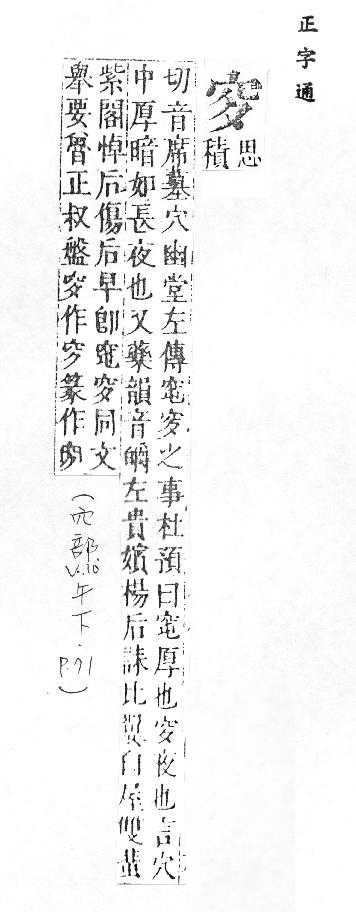 正字通
穸 思積
切音席墓穴幽堂左傳窀穸之事杜預曰窀厚也穸夜也言穴
中厚暗如長夜也又藥韻音皭左貴嬪楊后誄比翼白屋雙蜚
紫閣悼后傷后早卽窀穸同文
舉要魯正叔盤穸作篆作
(穴部 V.10 午下. p.91)